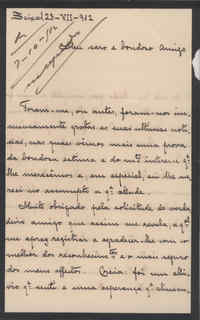 Seixal 23-VII-912
7-10-912
Meu caro e bondoso Amigo
Foram-me, ou antes, foram-nos im-
mensamente gratas as suas ultimas noti-
cias, nas quais vimos mais uma prova
da bondosa estima e do mto interesse q.
lhe merecêmos e, em especial, eu lhe me-
reci no assumpto a q. allude.
Muito obrigado pela solicitude do verda-
deiro amigo que assim me revela, e q.
me apraz registrar e agradecer-lhe com o
melhor dos reconhecimentos e o mais seguro
dos meus affectos. Creia: foi um alli-
vio q. sinto e uma esperança q.